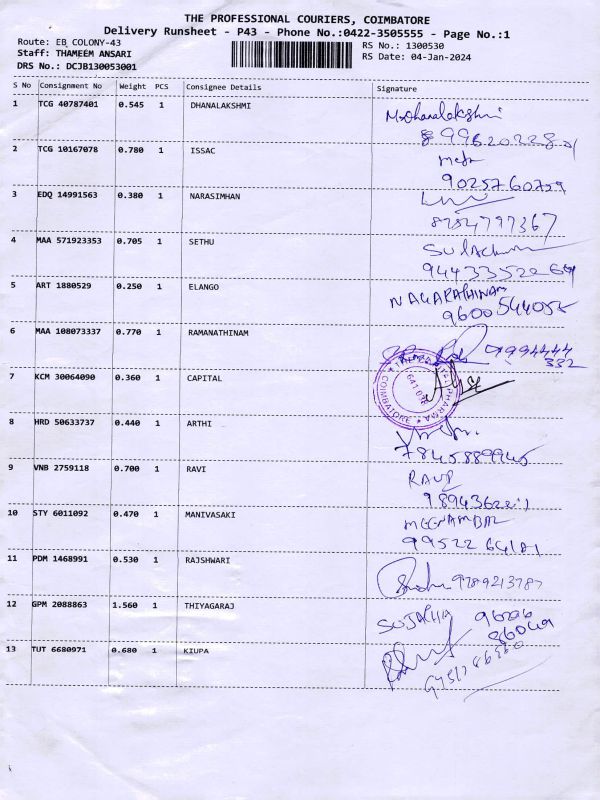 THE PROFESSIONAL COURIERS, COIMBATORE
Delivery Runsheet - P43 - Phone No.:0422-3505555 - Page No.:1
Route: EB COLONY-43
RS No.: 1300530
Staff: THAMEEM ANSARI
RS Date: 04-Jan-2024
DRS No.: DCJB130053001
S No Consignment No Weight PCS Consignee Details Signature
1 TCG 40787401 0.545 1 DHANALAKSHMI M.Dhanalakshmi
2 TCG 10167078 0.780 1 ISSAC
9025760759
3 EDQ 14991563 0.380 1 NARASIMHAN
8784797367
4 MAA 571923353 0.705 1 SETHU
5 ART 1880529 0.250 1 ELANGO NAGARATHINAM
6 MAA 108073337 0.770 1 RAMANATHINAM
7 KCM 30064090 0.360 1 CAPITAL
COIMBATORE
8 HRD 50633737 0.440 1 ARTHI
7845889945
9 VNB 2759118 0.700 1 RAVI RAVI
10 STY 6011092 0.470 1 MANIVASAKI MEENAMBAL
11 PDM 1468991 0.530 1 RAJSHWARI 9789213787
12 GPM 2088863 1.560 1 THIYAGARAJ SUJATHA
13 TUT 6680971 0.680 1 KIUPA